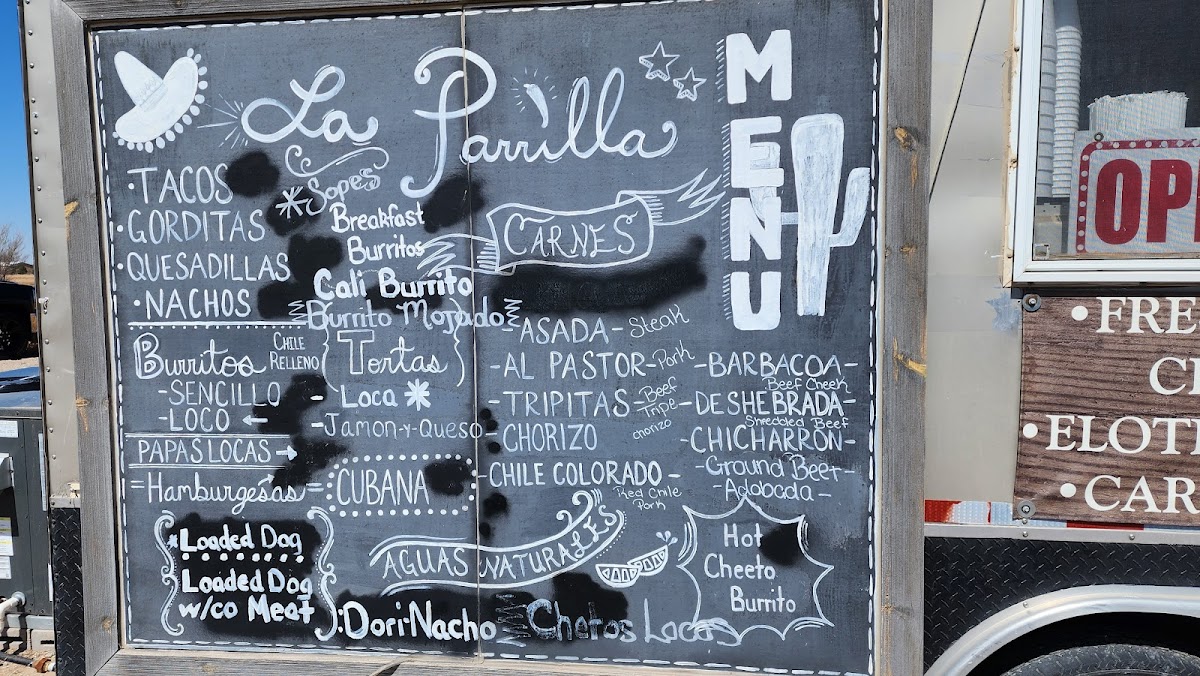 La Parrilla
MENU
·TACOS
·GORDITAS
·QUESADILLAS
·NACHOS
*Sopes
Breakfast
Burritos
Cali Burrito
Burrito Mojado
Burritos
CHILE
RELLENO
-SENCILLO
-LOCO
PAPAS LOCAS
=Hamburgesas=
Tortas
-Loca *
-Jamon-y-Queso
CUBANA
CARNES
-ASADA- Steak
-AL PASTOR-Pork
-TRIPITAS- Beef
Tripe
-CHORIZO chorizo
-CHILE COLORADO-
Red Chile
Pork
-BARBACOA-
Beef Cheek
-DESHEBRADA-
Shredded Beef
-CHICHARRON-
-Ground Beef-
-Adobada-
AGUAS NATURALES
*Loaded Dog
Loaded Dog
w/co Meat
:Dori Nacho
Chetos Locos
Hot
Cheeto
Burrito
OP
• FRE
C
• ELOT
• CAR